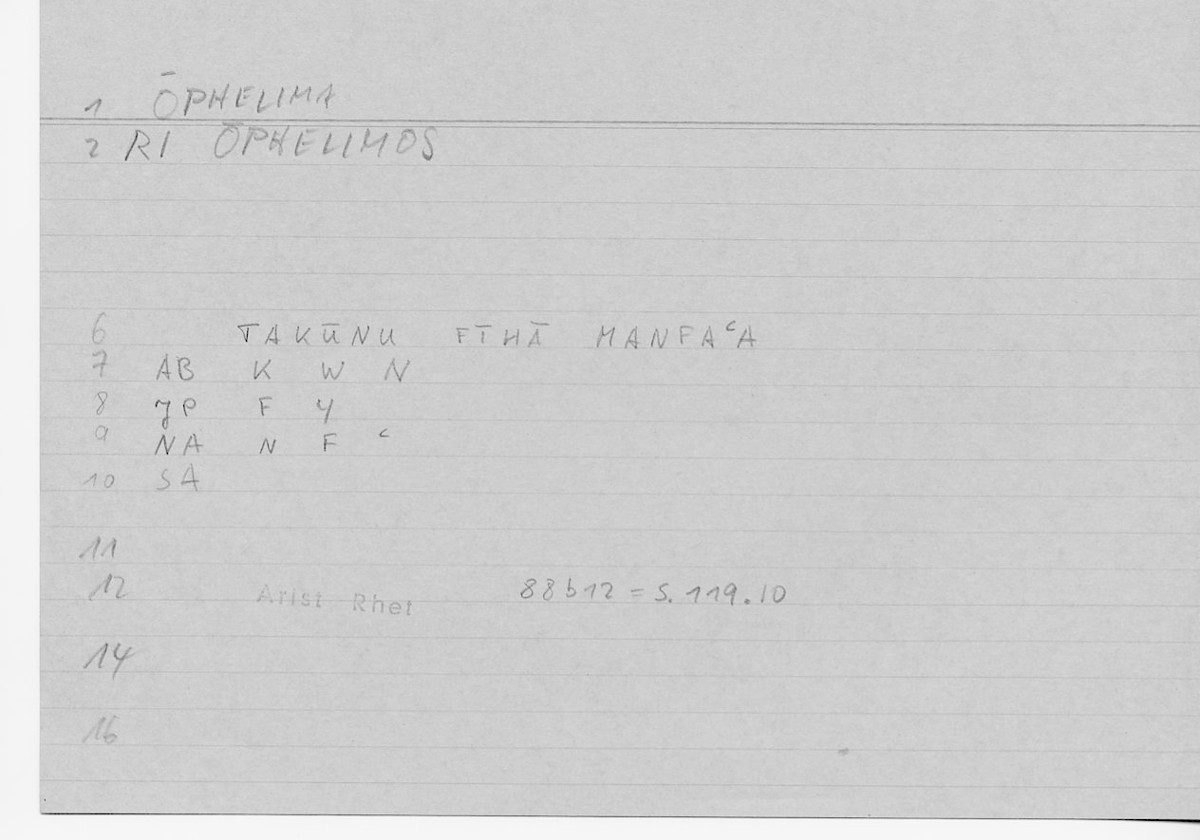 1 ŌPHELIMA
2 RI ŌPHELIMOS
6 TAKŪNU FĪHĀ MANFAʿA
7 AB K W N
8 JP F Y
9 NA N F ʿ
10 SA
11
12 Arist Rhet 88b12 = S. 119.10
14
16